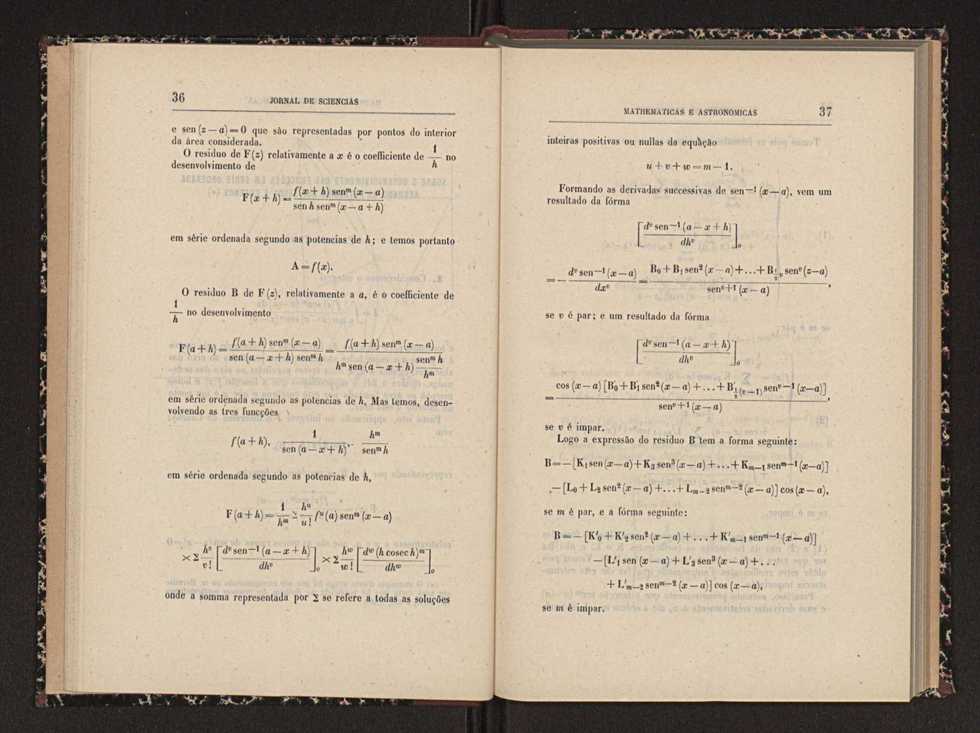 36 JORNAL DE SCIENCIAS
e sen (z — a) = 0 que são representadas por pontos do interior
da área considerada.
O residuo de F(z) relativamente a x é o coefficiente de 1/h no
desenvolvimento de
F(x + h) = f(x + h) senᵐ (x — a) / sen h senᵐ (x — a + h)
em série ordenada segundo as potencias de h; e temos portanto
A = f(x).
O residuo B de F(z), relativamente a a, é o coefficiente de
1/h no desenvolvimento
F(a + h) = f(a + h) senᵐ (x — a) / sen (a — x + h) senᵐ h = f(a + h) senᵐ (x — a) / hᵐ sen (a — x + h) senᵐ h/hᵐ
em série ordenada segundo as potencias de h. Mas temos, desen-
volvendo as tres funcções
f(a + h), 1 / sen (a — x + h), hᵐ / senᵐ h
em série ordenada segundo as potencias de h,
F(a + h) = 1/hᵐ Σ hᵘ/u! fᵘ(a) senᵐ (x — a)
× Σ hᵛ/v! [dᵛ sen⁻¹ (a — x + h) / dhᵛ]₀ × Σ hʷ/w! [dʷ (h cosec h)ᵐ / dhʷ]₀
onde a somma representada por Σ se refere a todas as soluções
MATHEMATICAS E ASTRONOMICAS 37
inteiras positivas ou nullas da equação
u + v + w = m — 1.
Formando as derivadas successivas de sen⁻¹ (x — a), vem um
resultado da fórma
[dᵛ sen⁻¹ (a — x + h) / dhᵛ]₀
= — dᵛ sen⁻¹ (x — a) / dxᵛ = B₀ + B₁ sen² (x — a) + ... + B_{½v} senᵛ (z — a) / senᵛ⁺¹ (x — a),
se v é par; e um resultado da fórma
[dᵛ sen⁻¹ (a — x + h) / dhᵛ]₀
= cos (x — a) [B′₀ + B′₁ sen² (x — a) + ... + B′_{½(v—1)} senᵛ⁻¹ (x — a)] / senᵛ⁺¹ (x — a),
se v é impar.
Logo a expressão do residuo B tem a forma seguinte:
B = — [K₁ sen (x — a) + K₃ sen³ (x — a) + ... + Kₘ₋₁ senᵐ⁻¹ (x — a)]
— [L₀ + L₂ sen² (x — a) + ... + Lₘ₋₂ senᵐ⁻² (x — a)] cos (x — a),
se m é par, e a fórma seguinte:
B = — [K′₀ + K′₂ sen² (x — a) + ... + K′ₘ₋₁ senᵐ⁻¹ (x — a)]
— [L′₁ sen (x — a) + L′₂ sen³ (x — a) + ...
+ L′ₘ₋₂ senᵐ⁻² (x — a)] cos (x — a),
se m é impar.